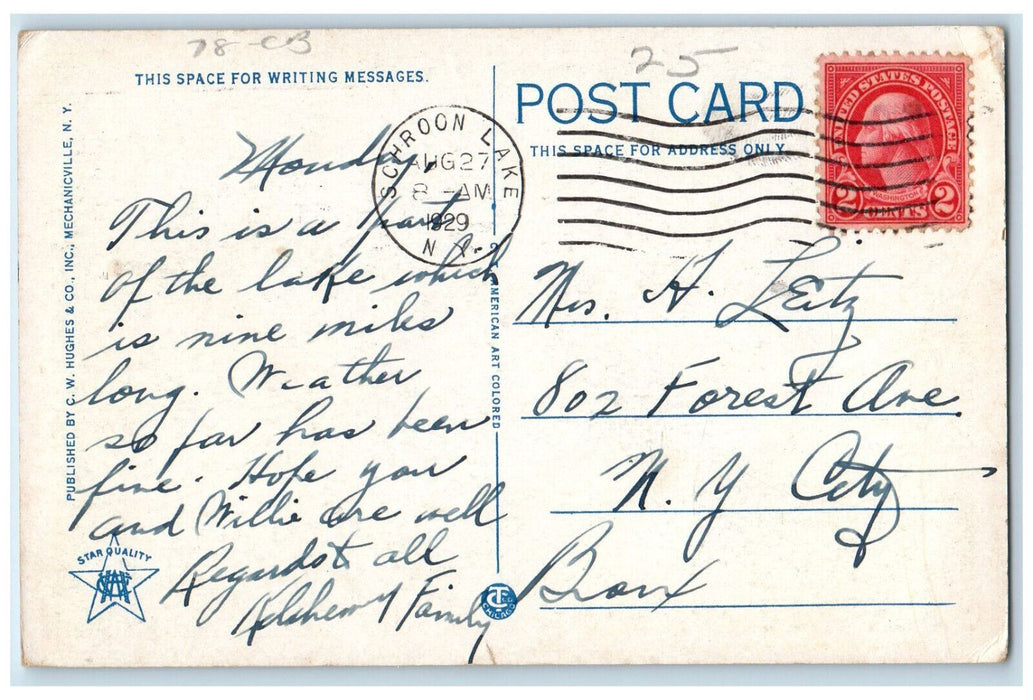 78-CB
25
THIS SPACE FOR WRITING MESSAGES.
POST CARD
THIS SPACE FOR ADDRESS ONLY.
UNITED STATES POSTAGE
WASHINGTON
2 CENTS 2
SCHROON LAKE
AUG 27
8 - AM
1929
N.Y.
Monday
This is a part
of the lake which
is nine miles
long. Weather
so far has been
fine. Hope you
and Willie are well
Regards to all
Family
Mrs. H. Leitz
802 Forest Ave.
N. Y City
Bronx
PUBLISHED BY C. W. HUGHES & CO., INC., MECHANICVILLE, N. Y.
AMERICAN ART COLORED
STAR QUALITY
CHICAGO